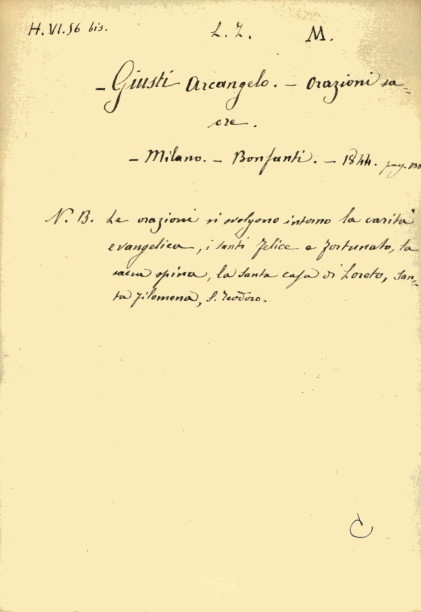 H. VI. 56 bis. L. Z. M.
- Giusti Arcangelo. - Orazioni sa-
cre.
- Milano. - Bonfanti. - 1844. pag.
N. B. Le orazioni si svolgono intorno la carità
evangelica, i santi Felice e Fortunato, la
sacra spina, la santa casa di Loreto, San-
ta Filomena, S. Teodoro.
C